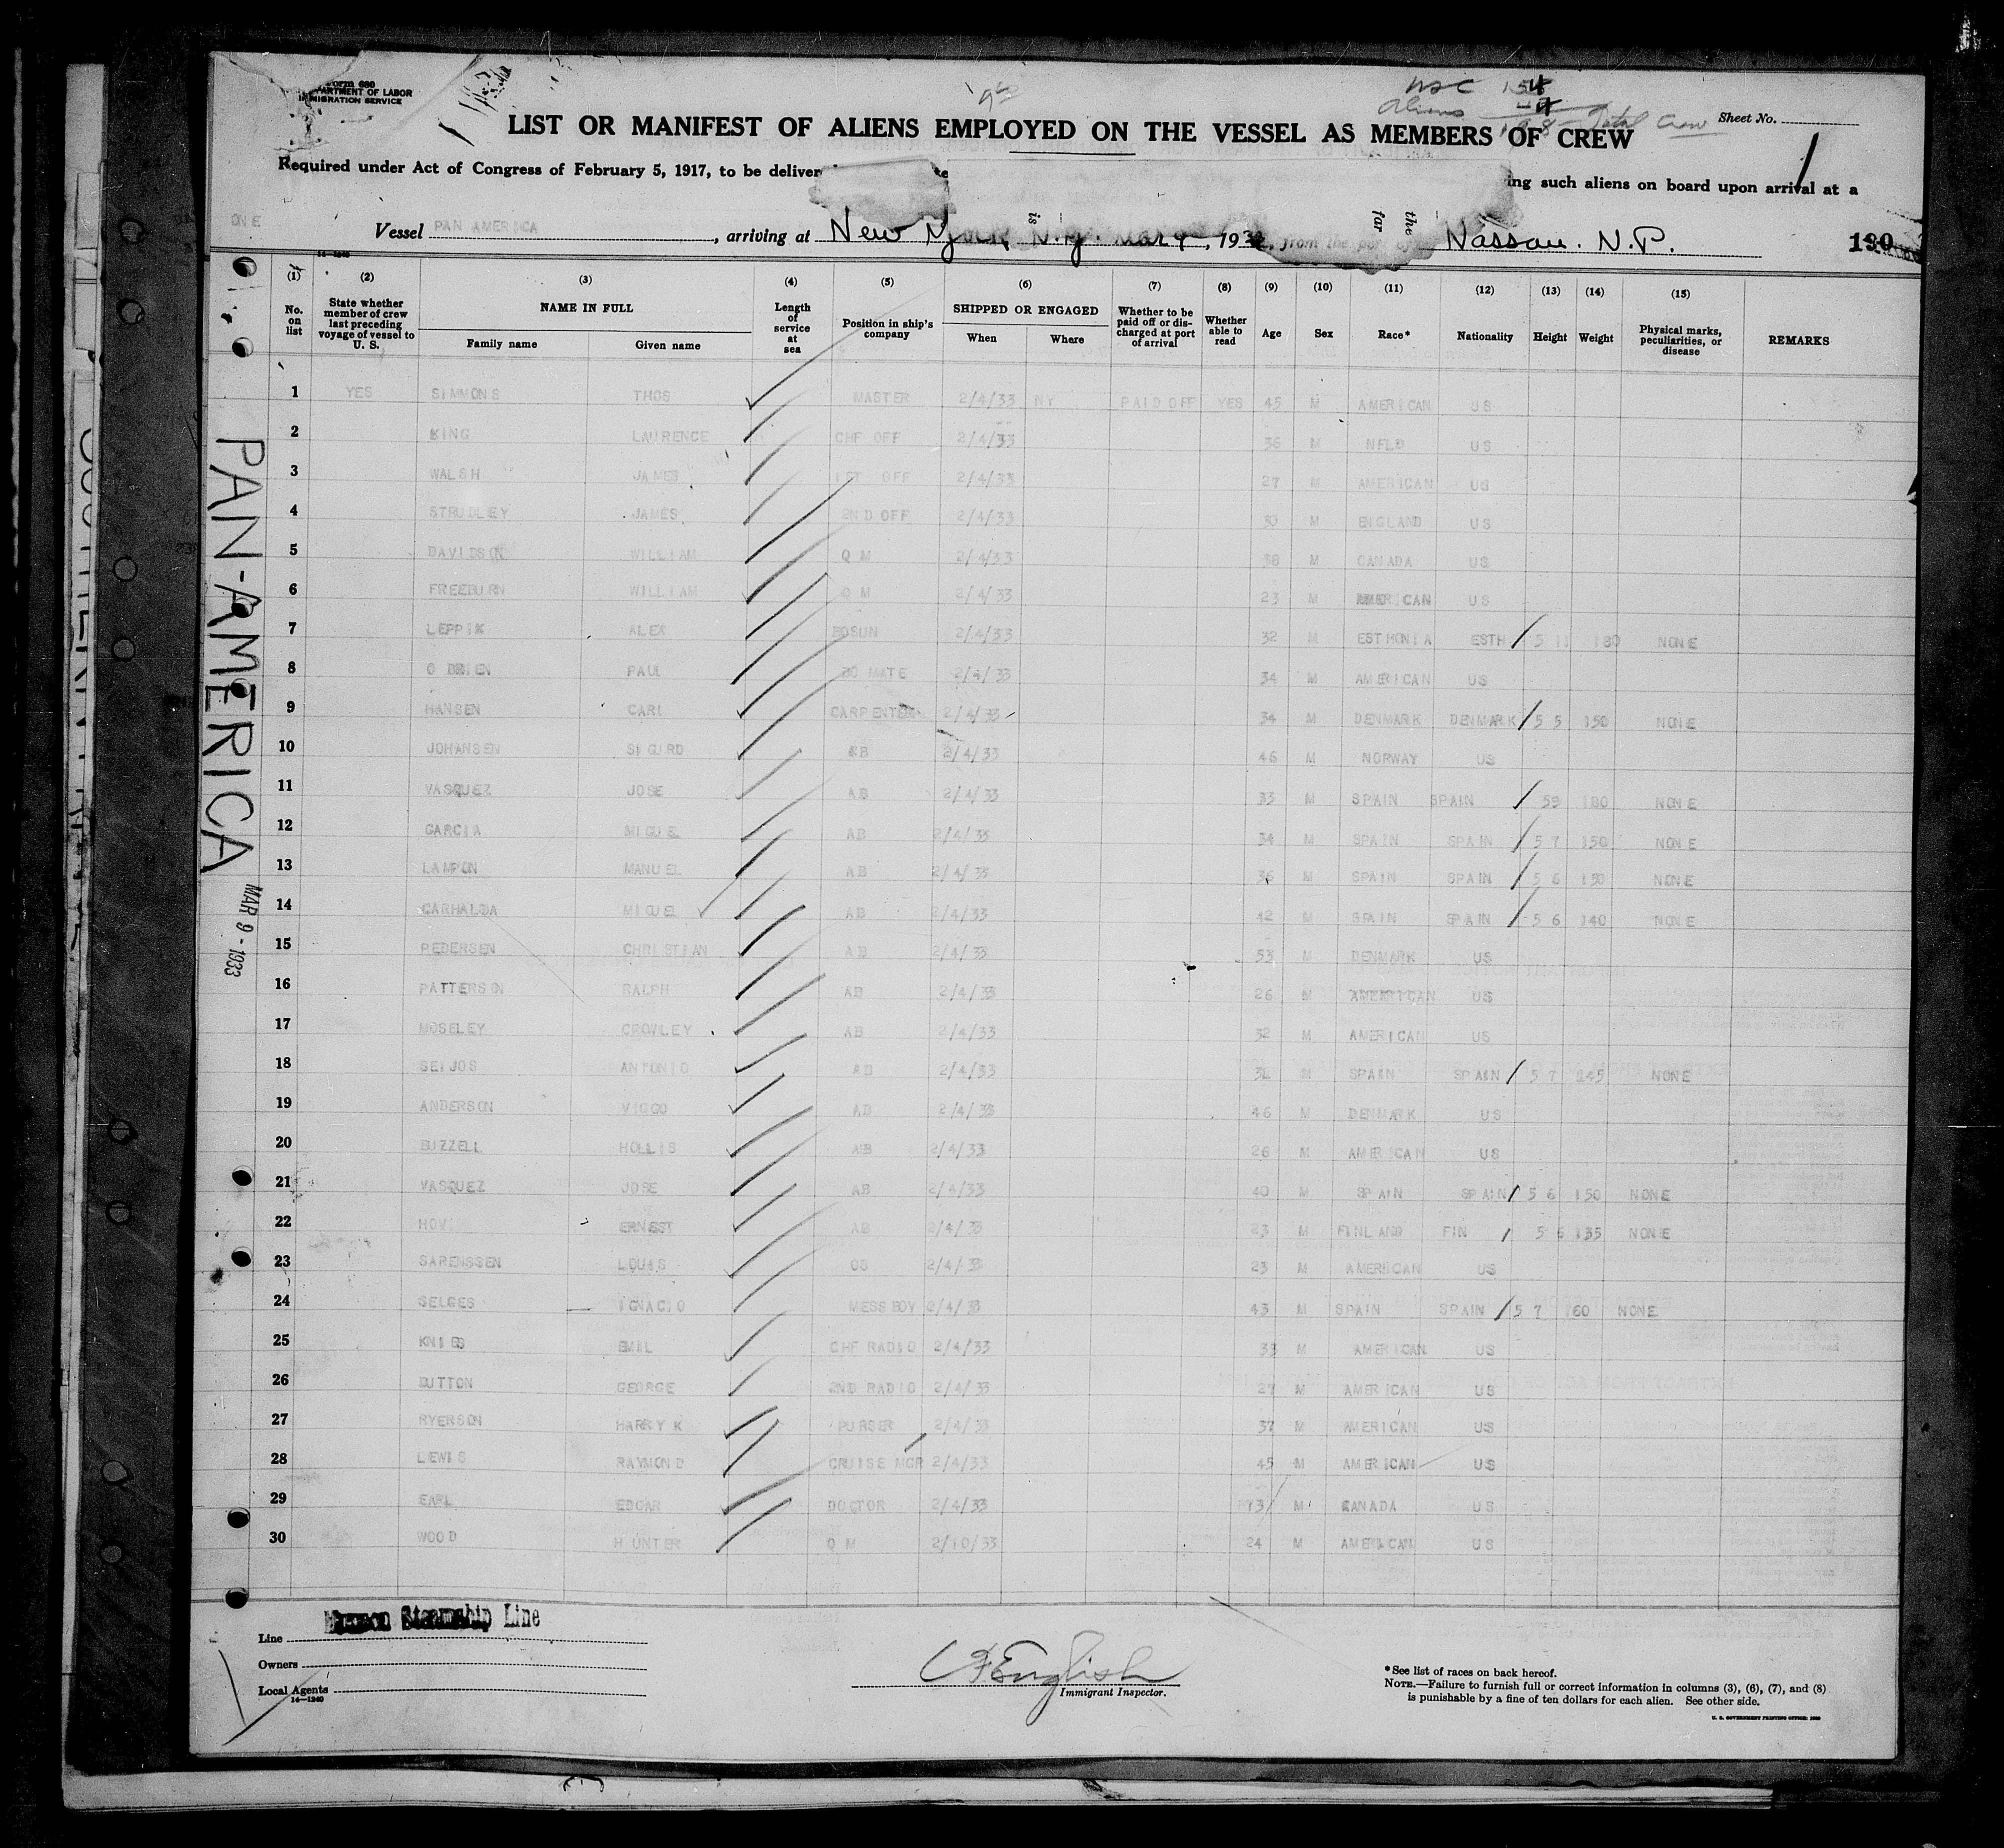 Form 680
DEPARTMENT OF LABOR
IMMIGRATION SERVICE
Sheet No.
1
LIST OR MANIFEST OF ALIENS EMPLOYED ON THE VESSEL AS MEMBERS OF CREW
Required under Act of Congress of February 5, 1917, to be deliver ing such aliens on board upon arrival at a
Vessel PAN AMERICA, arriving at New York, N.Y. Mar 9, 193 , from the port of Nassau. N.P. 130
(1) (2) (3) (4) (5) (6) (7) (8) (9) (10) (11) (12) (13) (14) (15)
No. on list State whether member of crew last preceding voyage of vessel to U. S. NAME IN FULL Family name Given name Length of service at sea Position in ship's company SHIPPED OR ENGAGED When Where Whether to be paid off or discharged at port of arrival Whether able to read Age Sex Race* Nationality Height Weight Physical marks, peculiarities, or disease REMARKS
1 YES SIMMONS THOS MASTER 2/4/33 NY PAID OFF YES 45 M AMERICAN US
2 KING LAURENCE CHF OFF 2/4/33 36 M NFLD US
3 WALSH JAMES 1ST OFF 2/4/33 27 M AMERICAN US
4 STRUDLEY JAMES 2ND OFF 2/4/33 M ENGLAND US
5 DAVIDSON WILLIAM Q M 2/4/33 38 M CANADA US
6 FREEBURN WILLIAM Q M 2/4/33 23 M AMERICAN US
7 LEPPIK ALEX BOSUN 2/4/33 32 M ESTHONIA ESTH 5 11 180 NONE
8 O BRIEN PAUL BO MATE 2/4/33 34 M AMERICAN US
9 HANSEN CARL CARPENTER 2/4/33 34 M DENMARK DENMARK 5 5 150 NONE
10 JOHANSEN SIGURD AB 2/4/33 46 M NORWAY US
11 VASQUEZ JOSE AB 2/4/33 33 M SPAIN SPAIN 59 180 NONE
12 GARCIA MIGUEL AB 2/4/33 34 M SPAIN SPAIN 5 7 150 NONE
13 LAMPON MANUEL AB 2/4/33 36 M SPAIN SPAIN 5 6 150 NONE
14 MIGUEL AB 2/4/33 42 M SPAIN SPAIN 5 6 140 NONE
15 PEDERSEN CHRISTIAN AB 2/4/33 53 M DENMARK US
16 PATTERSON RALPH AB 2/4/33 26 M AMERICAN US
17 MOSELEY CROWLEY AB 2/4/33 32 M AMERICAN US
18 SEIJOS ANTONIO AB 2/4/33 M SPAIN SPAIN 5 7 145 NONE
19 ANDERSON VIGGO AB 2/4/33 46 M DENMARK US
20 BUZZELL HOLLIS AB 2/4/33 26 M AMERICAN US
21 VASQUEZ JOSE AB 2/4/33 40 M SPAIN SPAIN 5 6 150 NONE
22 HOV ERNEST AB 2/4/33 23 M FINLAND FIN 5 6 135 NONE
23 SARENSSEN LOUIS OS 2/4/33 23 M AMERICAN US
24 SELGES IGNACIO MESSBOY 2/4/33 43 M SPAIN SPAIN 5 7 160 NONE
25 EMIL CHF RADIO 2/4/33 33 M AMERICAN US
26 DUTTON GEORGE 2ND RADIO 2/4/33 27 M AMERICAN US
27 RYERSON HARRY K PURSER 2/4/33 37 M AMERICAN US
28 LEWIS RAYMOND CRUISE MGR 2/4/33 45 M AMERICAN US
29 EARL EDGAR DOCTOR 2/4/33 73 M CANADA US
30 WOOD HUNTER Q M 2/10/33 24 M AMERICAN US
PAN-AMERICA
MAR 9 - 1933
Line Munson Steamship Line
Owners
Local Agents
14—1240
English
Immigrant Inspector.
*See list of races on back hereof.
NOTE.—Failure to furnish full or correct information in columns (3), (6), (7), and (8)
is punishable by a fine of ten dollars for each alien. See other side.